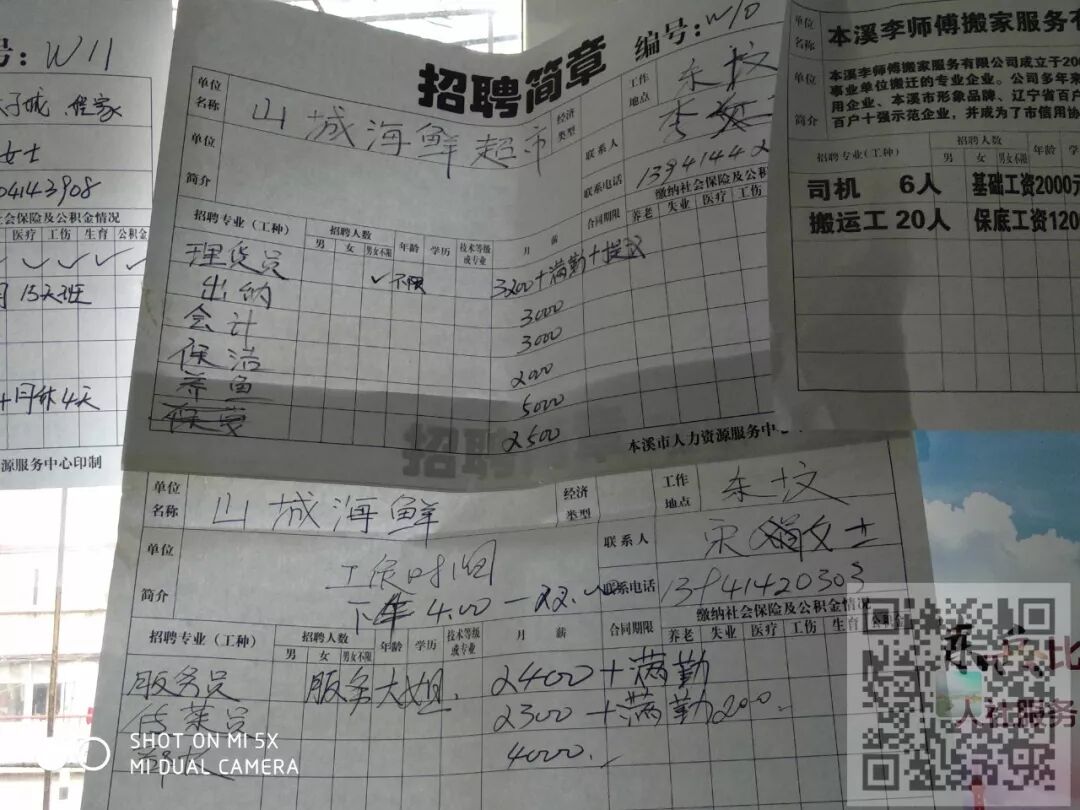 号：W11
女士
04143908
社会保险及公积金情况
医疗 工伤 生育 公积金
✓ ✓ ✓ ✓ ✓
15天班
月休4天
源服务中心印制
招聘简章
编号：W10
单位名称
山城海鲜超市
经济类型
工作地点
东坟
单位简介
联系人
李
联系电话
1394144
缴纳社会保险及公积
招聘专业（工种） 招聘人数 年龄 学历 技术等级或专业 月薪 合同期限 养老 失业 医疗 工伤
男 女 男女不限
理货员 ✓ 不限 3200+满勤+提成
出纳 3000
会计 3000
保洁 2000
养鱼 5000
2500
本溪市人力资源服务中心
单位名称
山城海鲜
经济类型
工作地点
东坟
单位简介
下午4.00-22.
联系人
女士
联系电话
13941420303
缴纳社会保险及公积金情况
招聘专业（工种） 招聘人数 年龄 学历 技术等级或专业 月薪 合同期限 养老 失业 医疗 工伤 生育 公积金
男 女 男女不限
服务员 服务大姐. 2400+满勤
传菜员 2300+满勤200.
4000.
单位名称
本溪李师傅搬家服务有
单位简介
本溪李师傅搬家服务有限公司成立于200
事业单位搬迁的专业企业。公司多年来
用企业、本溪市形象品牌、辽宁省百户
百户十强示范企业，并成为了市信用协
招聘专业（工种） 招聘人数 年龄 学
男 女 男女不限
司机 6人 基础工资2000元
搬运工 20人 保底工资120
人社服务
SHOT ON MI 5X
MI DUAL CAMERA